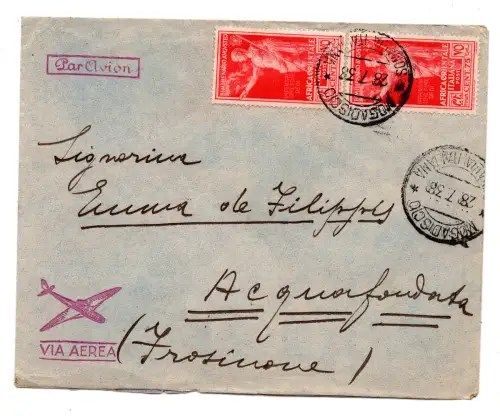 Par Avion
AFRICA ORIENTALE
ITALIANA
CENT. 75
AFRICA ORIENTALE
ITALIANA
CENT. 75
MOGADISCIO
28.7.38
MOGADISCIO
28.7.38
Signorina
Emma de Filippis
Acquafondata
(Frosinone)
VIA AEREA